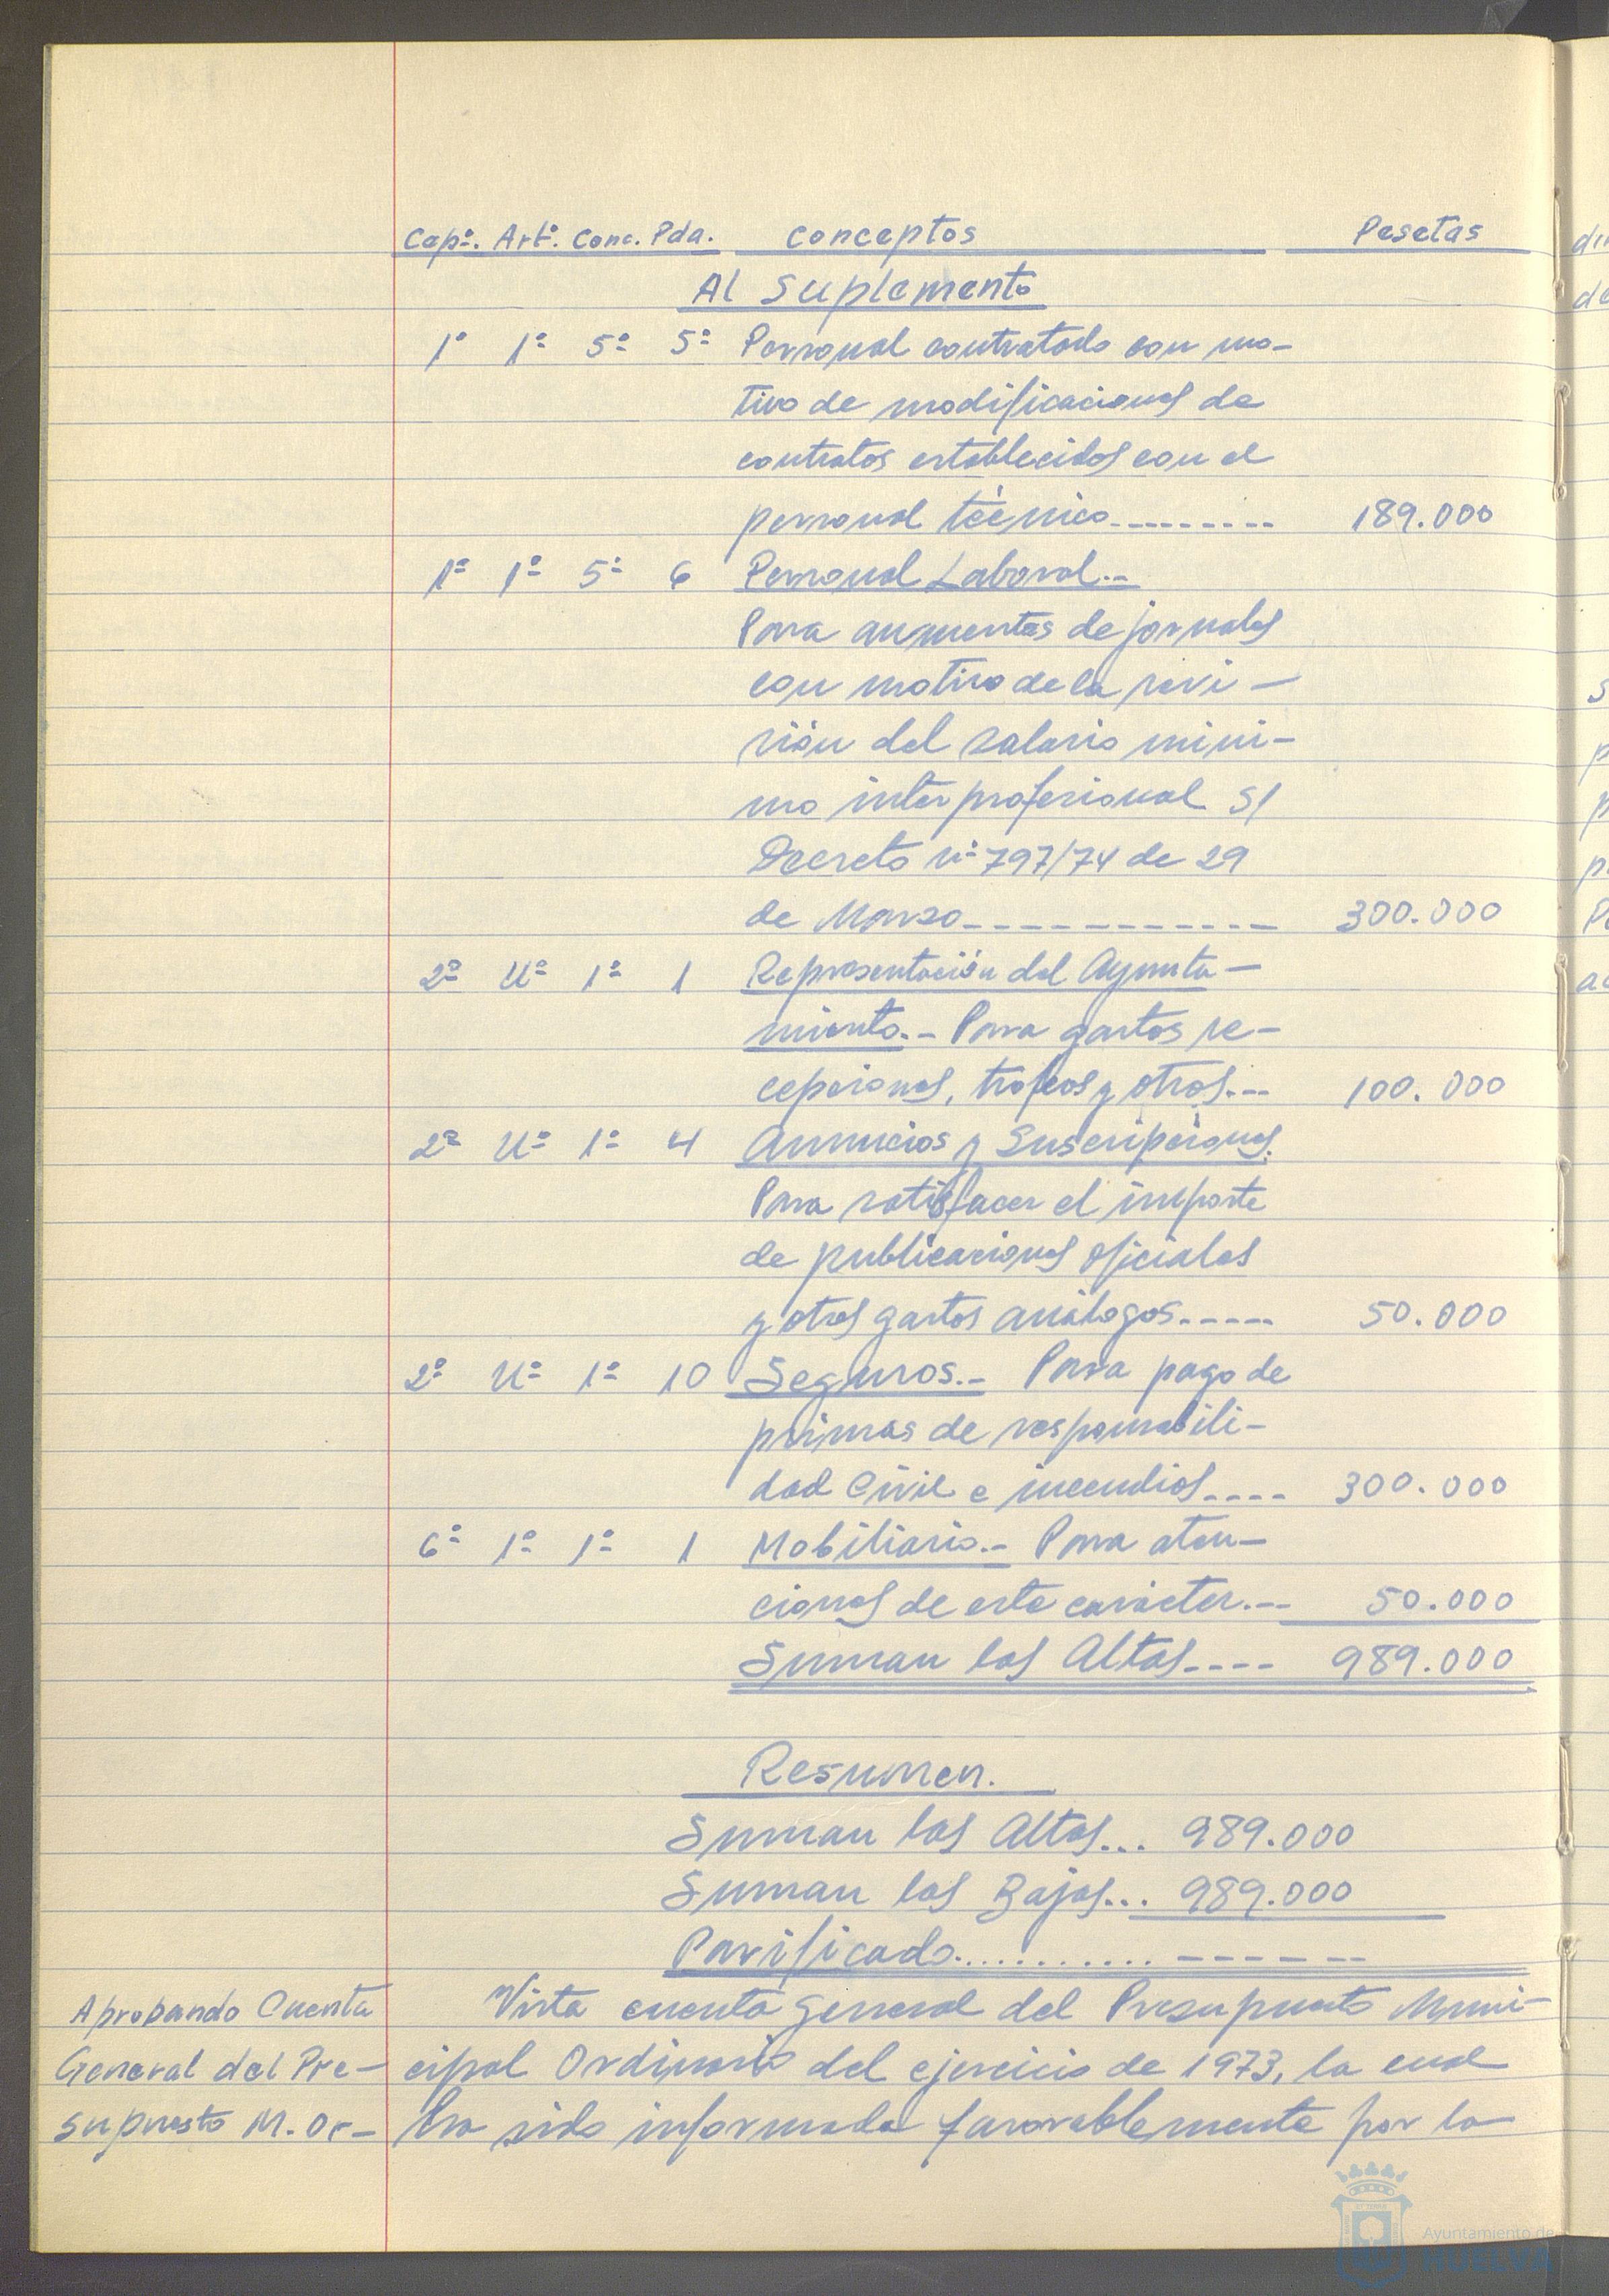 Capº. Artº. Conc. Pda. Conceptos Pesetas
Al Suplemento
1º 1º 5º 5º Personal contratado con mo-
tivo de modificaciones de
contratos establecidos con el
personal técnico--------- 189.000
1º 1º 5º 6 Personal Laboral.-
Para aumentos de jornales
con motivo de la revi-
sión del salario míni-
mo interprofesional s/
Decreto nº 797/74 de 29
de Marzo------------ 300.000
2º Uº 1º 1 Representación del Ayunta-
miento.- Para gastos re-
cepciones, trofeos y otros.-- 100.000
2º Uº 1º 4 Anuncios y Suscripciones.
Para satisfacer el importe
de publicaciones oficiales
y otros gastos análogos.---- 50.000
2º Uº 1º 10 Seguros.- Para pago de
primas de responsabili-
dad Civil e incendios---- 300.000
6º 1º 1º 1 Mobiliario.- Para aten-
ciones de este carácter.-- 50.000
Suman las Altas---- 989.000
Resumen.
Suman las Altas... 989.000
Suman las Bajas... 989.000
Parificado........... ------
Aprobando Cuenta Vista cuenta general del Presupuesto Muni-
General del Pre- cipal Ordinario del ejercicio de 1973, la cual
supuesto M. Or- ha sido informada favorablemente por la
Ayuntamiento de
HUELVA